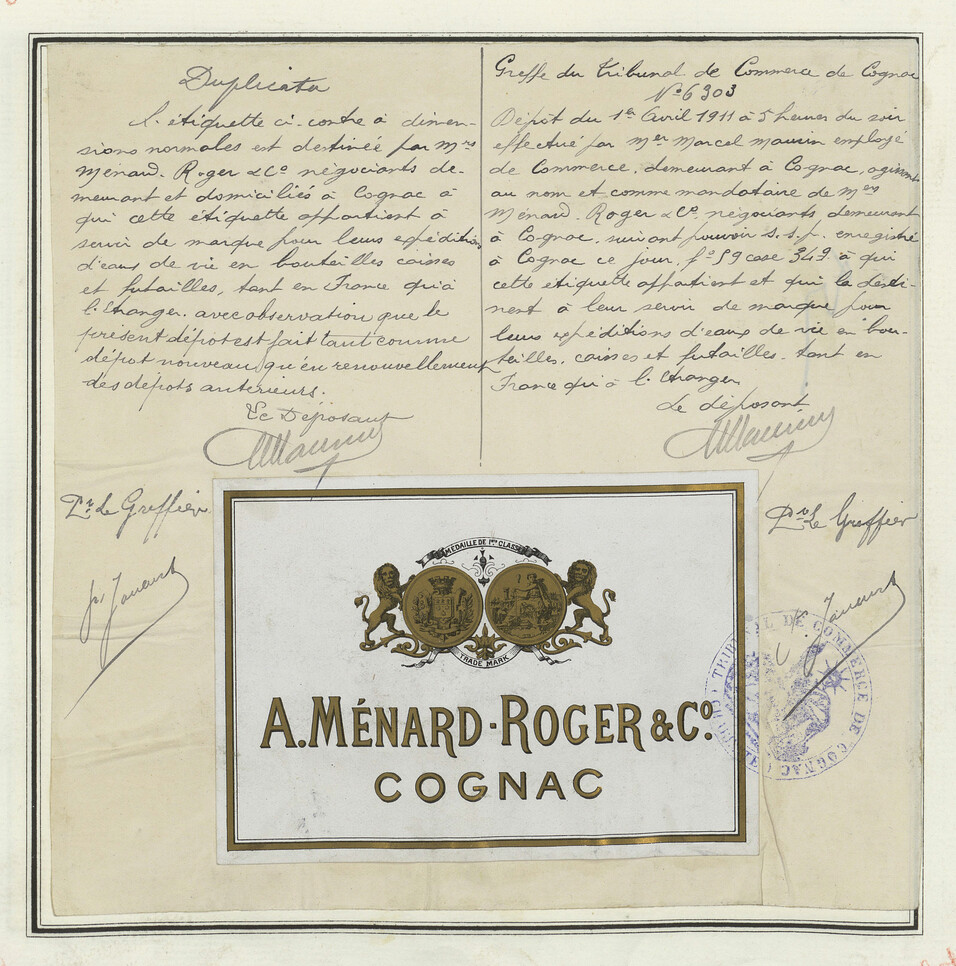 Duplicata
l'étiquette ci-contre à dimen-
sions normales est destinée par Mrs
Ménard-Roger & Co négociants de-
meurant et domiciliés à Cognac à
qui cette étiquette appartient à
servir de marque pour leurs expéditions
d'eaux de vie en bouteilles caisses
et futailles, tant en France qu'à
l'Etranger. avec observation que le
présent dépôt est fait tant comme
dépôt nouveau qu'en renouvellement
des dépôts antérieurs.
Le Déposant
MMaurin
Greffe du Tribunal de Commerce de Cognac
No 6303
Dépôt du 1er Avril 1911 à 5 heures du soir
effectué par Mer Marcel Maurin employé
de Commerce, demeurant à Cognac, agissant
au nom et comme mandataire de Mers
Ménard-Roger & Co. négociants, demeurant
à Cognac, suivant pouvoir s.s.p. enregistré
à Cognac ce jour, fo 59 case 349 à qui
cette étiquette appartient et qui la desti-
nent à leur servir de marque pour
leurs expéditions d'eaux de vie en bou-
teilles, caisses et futailles. tant en
France qu'à l'Etranger
Le déposant
MMaurin
Pr. Le Greffier
Pr Le Greffier
MÉDAILLE DE 1ère CLASSE
TRADE MARK
A. MÉNARD-ROGER & Co.
COGNAC
TRIBUNAL DE COMMERCE DE COGNAC